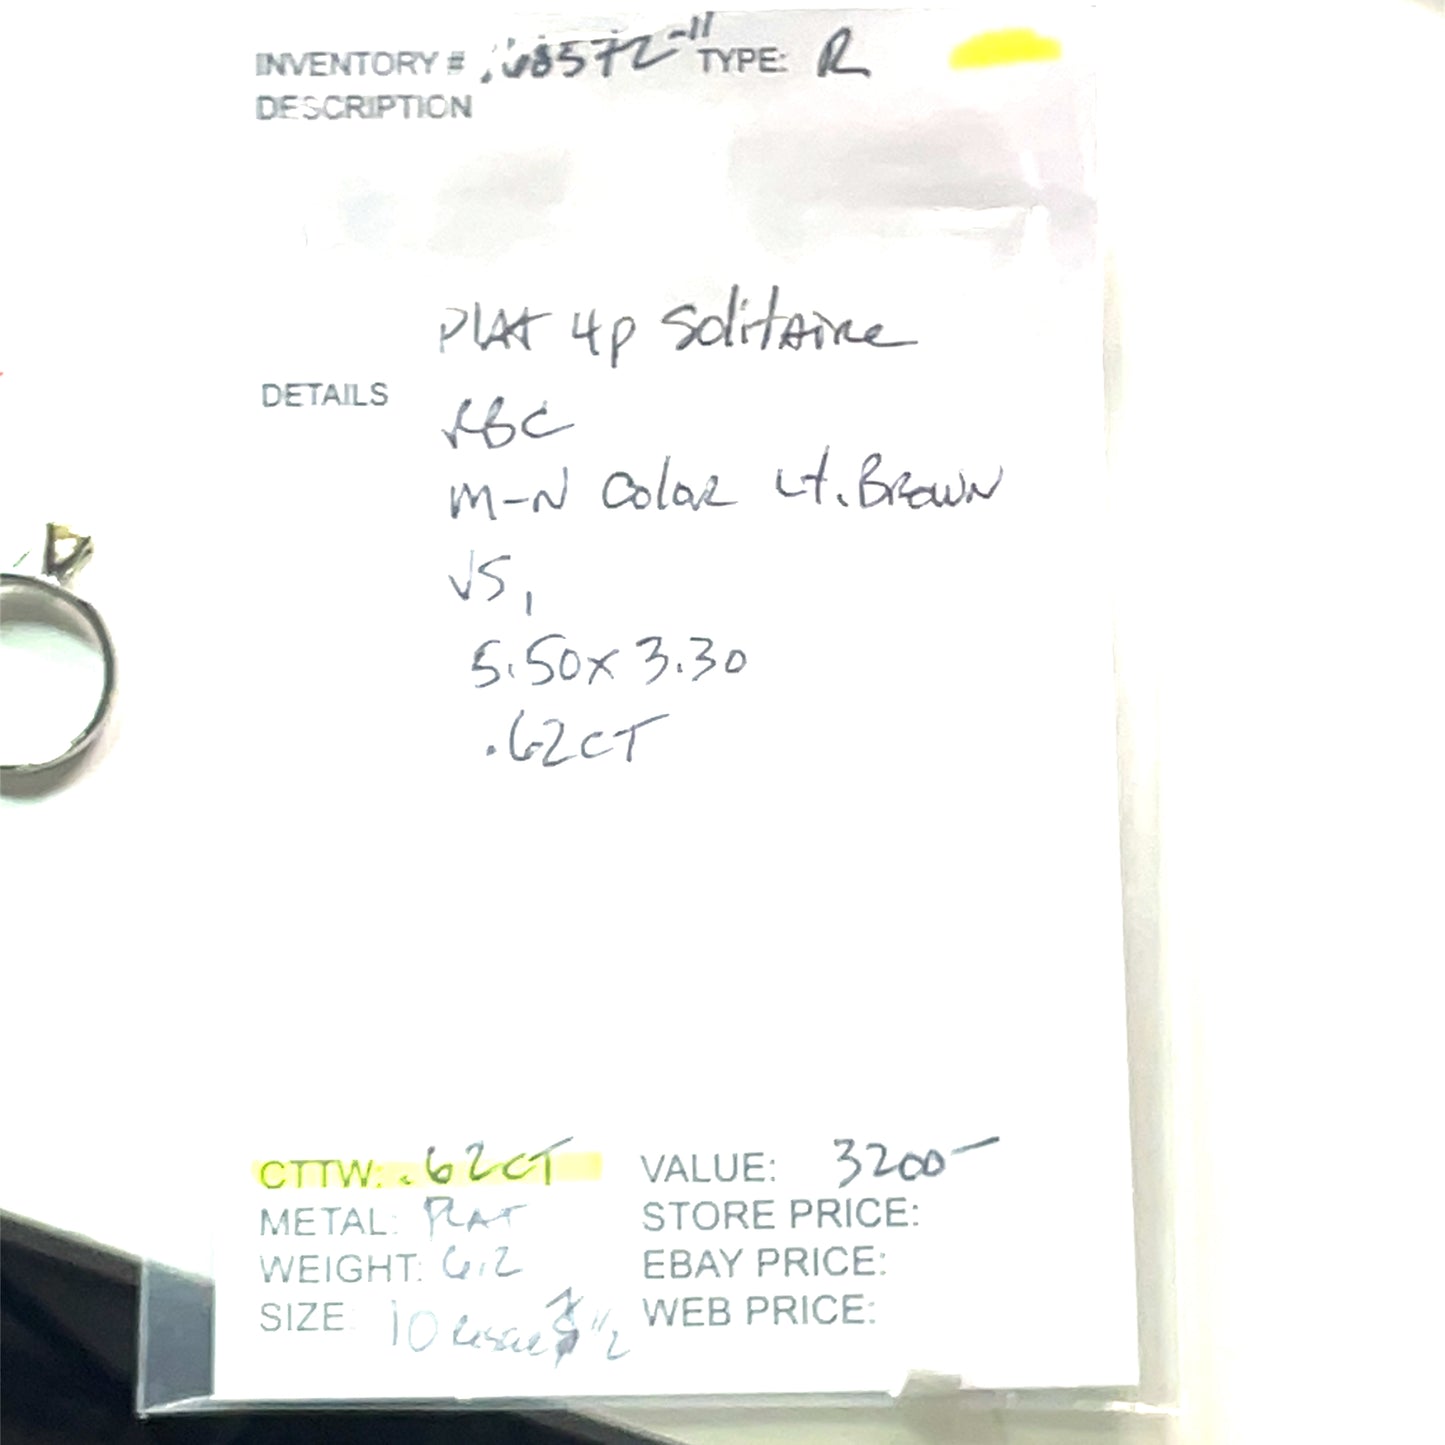 INVENTORY # .68572-11 TYPE: R
DESCRIPTION
PLAT 4p Solitaire
DETAILS
RBC
M-N Color Lt. BROWN
VS1
5.50x3.30
.62CT
CTTW: .62CT VALUE: 3200-
METAL: PLAT STORE PRICE:
WEIGHT: 6.2 EBAY PRICE:
SIZE: 10 1/2 WEB PRICE: